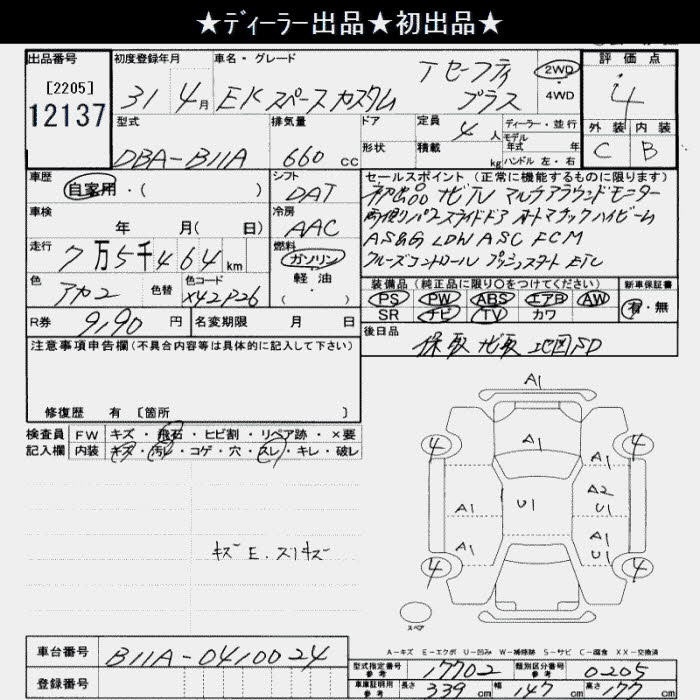 ★ディーラー出品★初出品★
出品番号 初度登録年月 車名・グレード 評価点
[2205] 31年 4月 EK スペースカスタム T セーフティ プラス 2WD 4
12137 4WD
型式 排気量 ドア 定員 4人 ディーラー・並行 外装 内装
モデル 年式 年
DBA-B11A 660cc 形状 積載 kg ハンドル 左・右 C B
車歴 シフト セールスポイント (正常に機能するものに限ります)
自家用・( ) DAT 初出品 ナビTV マルチアラウンドモニター
車検 冷房 両側パワースライドドア オートマチックハイビーム
年 月( 日) AAC AS&G LDW ASC FCM
走行 燃料 クルーズコントロール プッシュスタート ETC
7万5千464km ガソリン
色 色替 色コード 軽油 装備品 (純正品に限り○をつけてください) 新車保証書
アカ2 X42P26 ・( ) PS PW ABS エアB AW 有・無
SR ナビ TV カワ
R券 9,190円 名変期限 月 日 後日品
注意事項申告欄(不具合内容等は具体的に記入して下さい) 保取 ナビ取 地図SD
修復歴 有 [箇所 ]
検査員 FW キズ・飛石・ヒビ割・リペア跡・×要
記入欄 内装 キズ・汚レ・コゲ・穴・スレ・キレ・破レ
キズE. スリキズ
A1
4 A1 4
A1
A1 U1 A2
A1 A1
U1
4 4
スペア
A-キズ E-エクボ U-凹み W-補修跡 S-サビ C-腐食 XX-交換済
車台番号 B11A-0410024
型式指定番号 参考 17702 類別区分番号 参考 0205
登録番号 車庫証明用 参考 長さ 339cm 幅 147cm 高さ 77cm